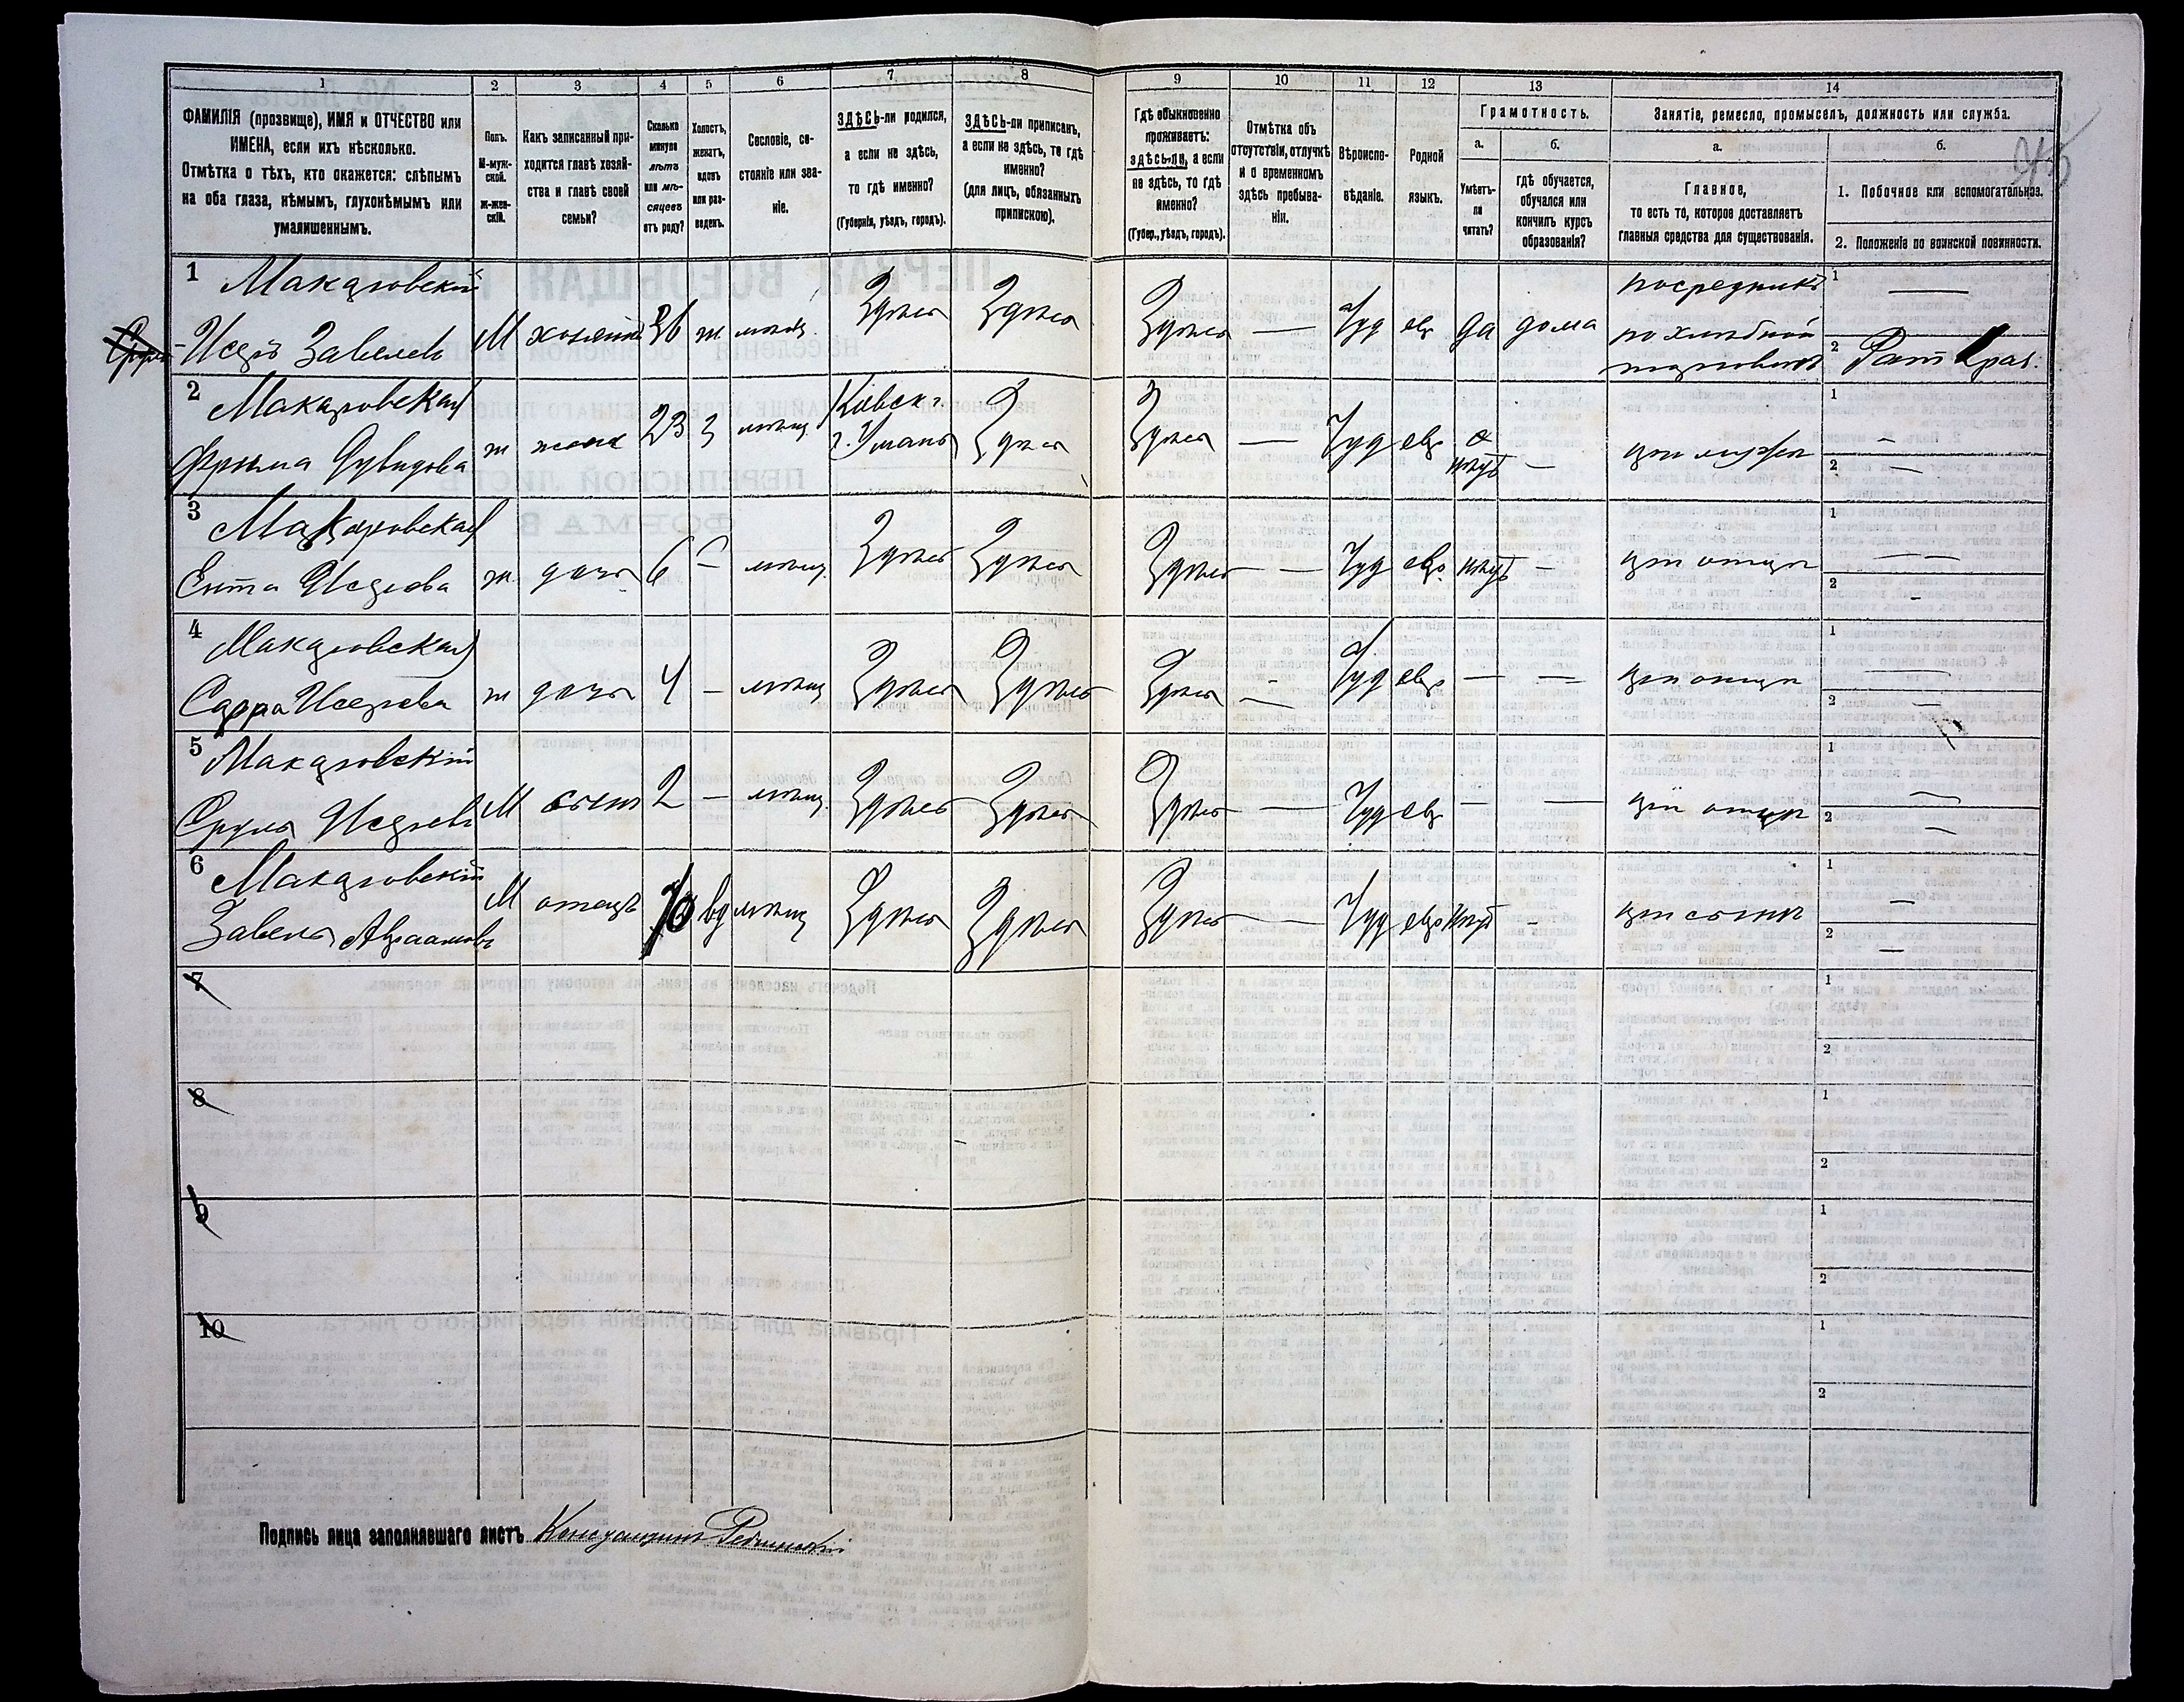 1
2
3
4
5
6
7
8
9
10
11
12
13
14
ФАМИЛІЯ (прозвище), ИМЯ и ОТЧЕСТВО или
ИМЕНА, если ихъ нѣсколько.
Отмѣтка о тѣхъ, кто окажется: слѣпымъ
на оба глаза, нѣмымъ, глухонѣмымъ или
умалишеннымъ.
Полъ.
М-муж-
ской.
ж-жен-
скій.
Какъ записанный при-
ходится главѣ хозяй-
ства и главѣ своей
семьи?
Сколько
минуло
лѣтъ
или мѣ-
сяцевъ
отъ роду?
Холостъ,
женатъ,
вдовъ
или раз-
веденъ.
Сословіе, со-
стояніе или зва-
ніе.
ЗДѢСЬ-ли родился,
а если не здѣсь,
то гдѣ именно?
(Губернія, уѣздъ, городъ).
ЗДѢСЬ-ли приписанъ,
а если не здѣсь, то гдѣ
именно?
(для лицъ, обязанныхъ
припискою).
Гдѣ обыкновенно
проживаетъ:
здѣсь-ли, а если
не здѣсь, то гдѣ
именно?
(Губер., уѣздъ, городъ).
Отмѣтка объ
отсутствіи, отлучкѣ
и о временномъ
здѣсь пребыва-
ніи.
Вѣроиспо-
вѣданіе.
Родной
языкъ.
Грамотность.
а.
Умѣетъ-
ли
читать?
б.
гдѣ обучается,
обучался или
кончилъ курсъ
образованія?
Занятіе, ремесло, промыселъ, должность или служба.
а.
Главное,
то есть то, которое доставляетъ
главныя средства для существованія.
б.
1. Побочное или вспомогательное.
2. Положеніе по воинской повинности.
1 Макаровскій
Исеръ Завелевъ М хозяинъ 36 ж мѣщ. Здѣсь Здѣсь Здѣсь — Іуд евр да дома
посредникъ
по хлѣбной
торговлѣ
1 —
2
2 Макаровская
Фрыма Дувидова ж жена 23 з мѣщ. Кіевск г.
г. Умань Здѣсь Здѣсь — Іуд евр нѣтъ — при мужѣ
1 —
2 —
3 Макаровская
Ента Исерова ж. дочь 6 — мѣщ. Здѣсь Здѣсь Здѣсь — Іуд евр. нѣтъ — при отцѣ
1 —
2 -
4 Макаровская
Сарра Исерова ж дочь 4 — мѣщ Здѣсь Здѣсь Здѣсь — Іуд евр — — при отцѣ
1 —
2 —
5 Макаровскій
Сруль Исеревъ М сынъ 2 — мѣщ. Здѣсь Здѣсь Здѣсь — Іуд евр — — при отцѣ
1 —
2 —
6 Макаровскій
Завель Авраамовъ М отецъ 70 вд мѣщ Здѣсь Здѣсь Здѣсь — Іуд евр нѣтъ - при сынѣ
1 —
2 —
7
1
2
8
1
2
9
1
2
10
1
2
Подпись лица заполнявшаго листъ Константинъ